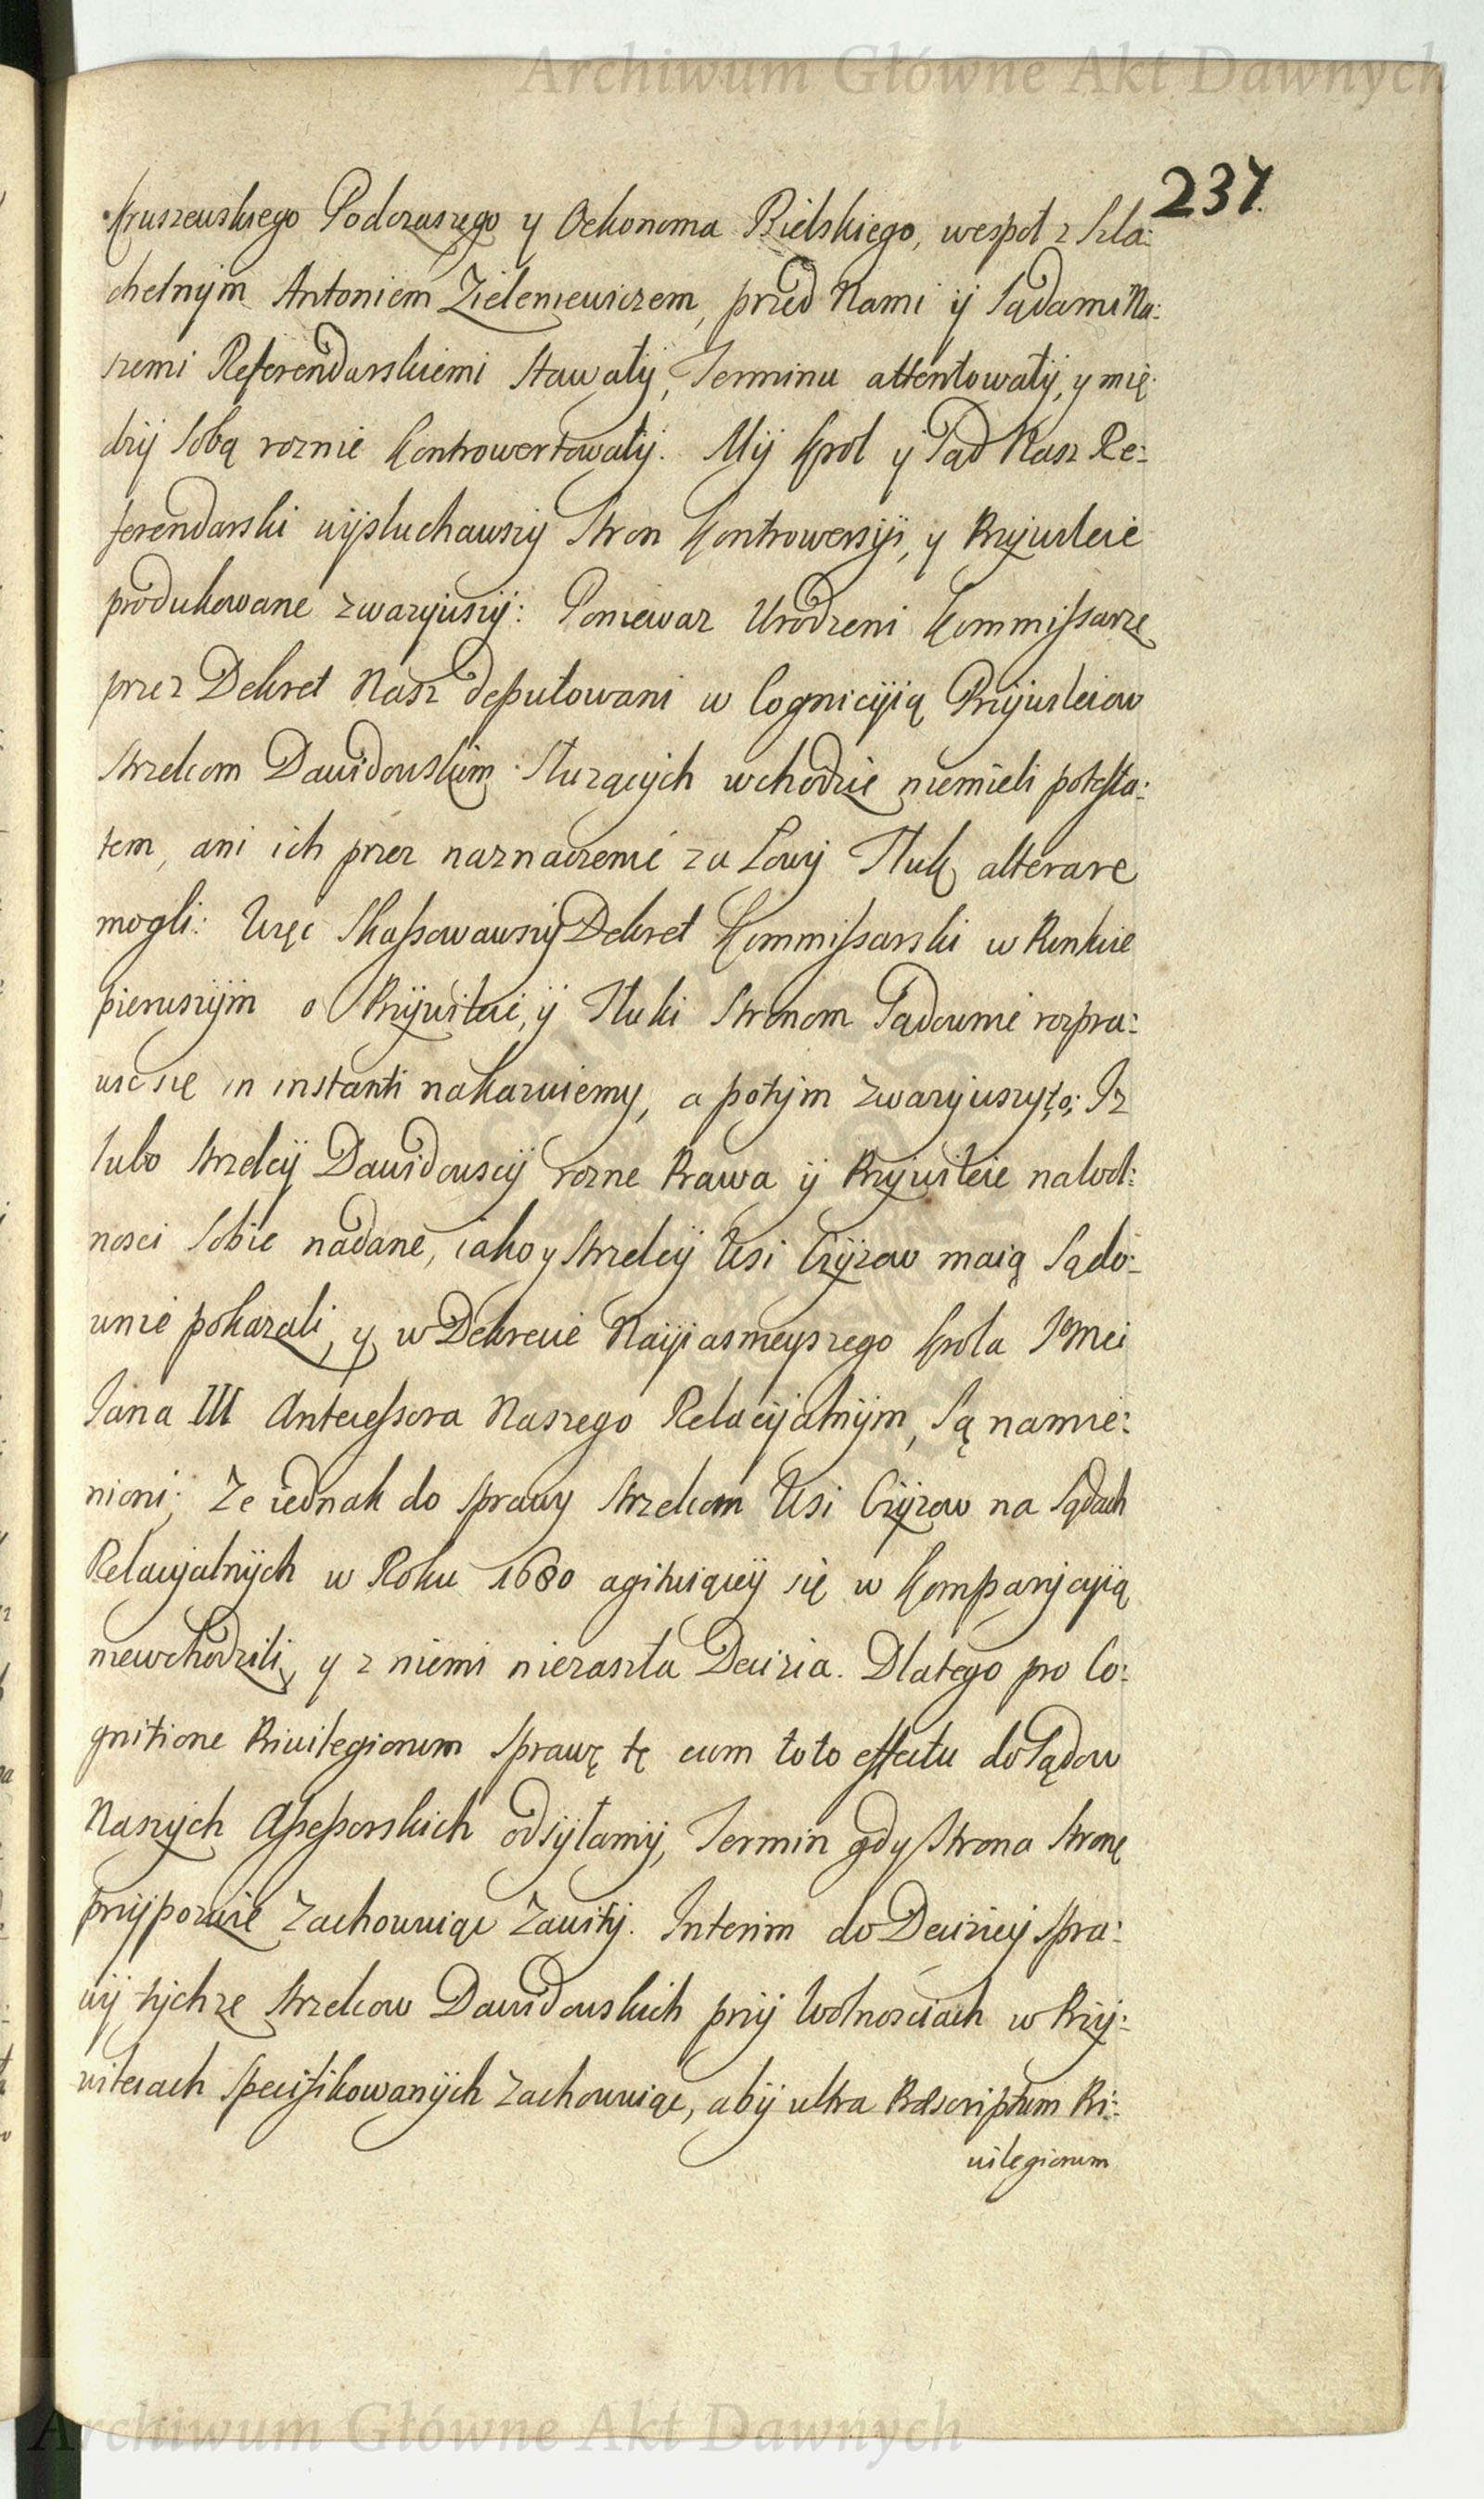 Archiwum Główne Akt Dawnych
237.
Kruszewskiego Podczaszego y Oekonoma Bielskiego, wespoł z Szla:
chetnym Antoniem Zieleniewiczem, przed Nami ÿ Sądami Na:
szemi Referendarskiemi stawałÿ, Terminu attentowałÿ, y mię:
dzÿ sobą roznie kontrowertowałÿ. Mÿ Krol ÿ Sąd Nasz Re:
ferendarski wÿsłuchawszÿ Stron kontrowersÿi, y Przÿwileie
produkowane zwazÿwszÿ: Poniewaz Urodzeni Kommissarze
przez Dekret Nasz deputowani w Cognicÿią Przÿwileiow
Strzelcom Dawidowskim słuzącÿch wchodzic niemieli potesta:
tem, ani ich przez naznaczenie za Łowÿ Włuk alterare
mogli: Więc skassowawszÿ Dekret Kommissarski w Punkcie
pierwszÿm o Przÿwileie, ÿ Włuki Stronom Sądownie rozpra:
wic się in instanti nakazuiemy, a potÿm zwazÿwszy to; Iz
lubo Strzelcÿ Dawidowscÿ rozne Prawa ÿ Przÿwileie na Wol:
nosci sobie nadane, iako y Strzelcÿ Wsi Czÿzow maią Sądo:
wnie pokazali, y w Dekrecie Naÿiasnieyszego Krola JoMci
Jana III Antecessora Naszego Relacÿalnÿm, są namie:
nioni; Ze iednak do sprawy Strzelcom Wsi Czÿzow na Sądach
Relacÿalnÿch w Roku 1680 agituiącÿ się w Komparÿcÿią
niewchodzili, y z niemi niezaszła Decizia. Dlatego pro Co:
gnitione Privilegiorum sprawę tę cum toto effectu do Sądow
Naszÿch Assessorskich odsÿłamÿ, Termin gdy Strona Stronę
przÿpozwie zachowuiąc zawitÿ. Interim do Deciziey spra:
wÿ tÿchze Strzelcow Dawidowskich przÿ Wolnosciach w Przÿ:
wileiach specifikowanÿch zachowuiąc, abÿ ultra Præscriptum Pri:
vilegiorum
Archiwum Główne Akt Dawnych